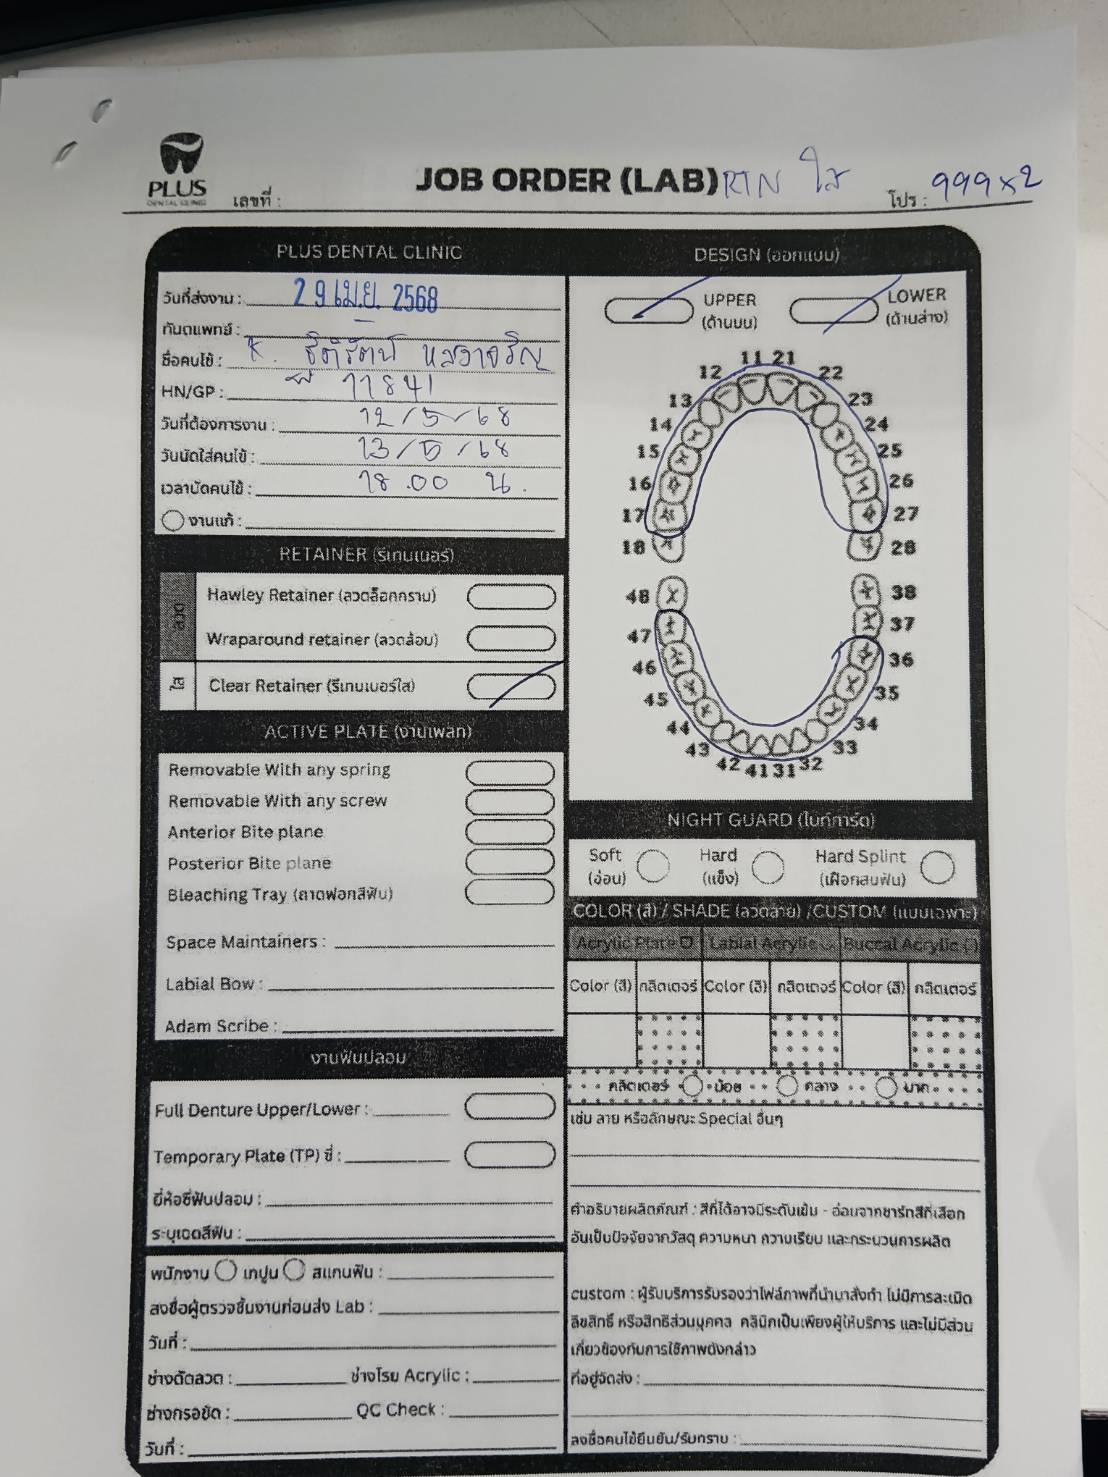 PLUS
DENTAL CLINIC
เลขที่ :
JOB ORDER (LAB) RTN ใส
โปร : 999x2
PLUS DENTAL CLINIC
วันที่ส่งงาน : 29 เม.ย. 2568
ทันตแพทย์ :
ชื่อคนไข้ : K. ฐิติรัตน์
HN/GP : 11841
วันที่ต้องการงาน : 12/5/68
วันนัดใส่คนไข้ : 13/5/68
เวลานัดคนไข้ : 18.00 น.
งานแก้ :
RETAINER (รีเทนเนอร์)
ลวด
Hawley Retainer (ลวดล็อกกราม)
Wraparound retainer (ลวดล้อม)
ใส
Clear Retainer (รีเทนเนอร์ใส)
ACTIVE PLATE (งานเพลท)
Removable With any spring
Removable With any screw
Anterior Bite plane
Posterior Bite plane
Bleaching Tray (ถาดฟอกสีฟัน)
Space Maintainers :
Labial Bow :
Adam Scribe :
งานฟันปลอม
Full Denture Upper/Lower :
Temporary Plate (TP) ซี่ :
ยี่ห้อซี่ฟันปลอม :
ระบุเฉดสีฟัน :
พนักงาน เทปูน สแกนฟัน :
ลงชื่อผู้ตรวจชิ้นงานก่อนส่ง Lab :
วันที่ :
ช่างดัดลวด : ช่างโรย Acrylic :
ช่างกรอขัด : QC Check :
วันที่ :
DESIGN (ออกแบบ)
UPPER
(ด้านบน)
LOWER
(ด้านล่าง)
11 21
12 22
13 23
14 24
15 25
16 26
17 27
18 28
48 38
47 37
46 36
45 35
44 34
43 33
42 41 31 32
NIGHT GUARD (ไนท์การ์ด)
Soft
(อ่อน)
Hard
(แข็ง)
Hard Splint
(เฝือกสบฟัน)
COLOR (สี) / SHADE (ลวดลาย) /CUSTOM (แบบเฉพาะ)
Acrylic Plate Labial Acrylic Buccal Acrylic
Color (สี) กลิตเตอร์ Color (สี) กลิตเตอร์ Color (สี) กลิตเตอร์
กลิตเตอร์ น้อย กลาง มาก
เช่น ลาย หรือลักษณะ Special อื่นๆ
คำอธิบายผลิตภัณฑ์ : สีที่ได้อาจมีระดับเข้ม - อ่อนจากชาร์ทสีที่เลือก
อันเป็นปัจจัยจากวัสดุ ความหนา ความเรียบ และกระบวนการผลิต
custom : ผู้รับบริการรับรองว่าไฟล์ภาพที่นำมาสั่งทำ ไม่มีการละเมิด
ลิขสิทธิ์ หรือสิทธิส่วนบุคคล คลินิกเป็นเพียงผู้ให้บริการ และไม่มีส่วน
เกี่ยวข้องกับการใช้ภาพดังกล่าว
ที่อยู่จัดส่ง :
ลงชื่อคนไข้ยืนยัน/รับทราบ :